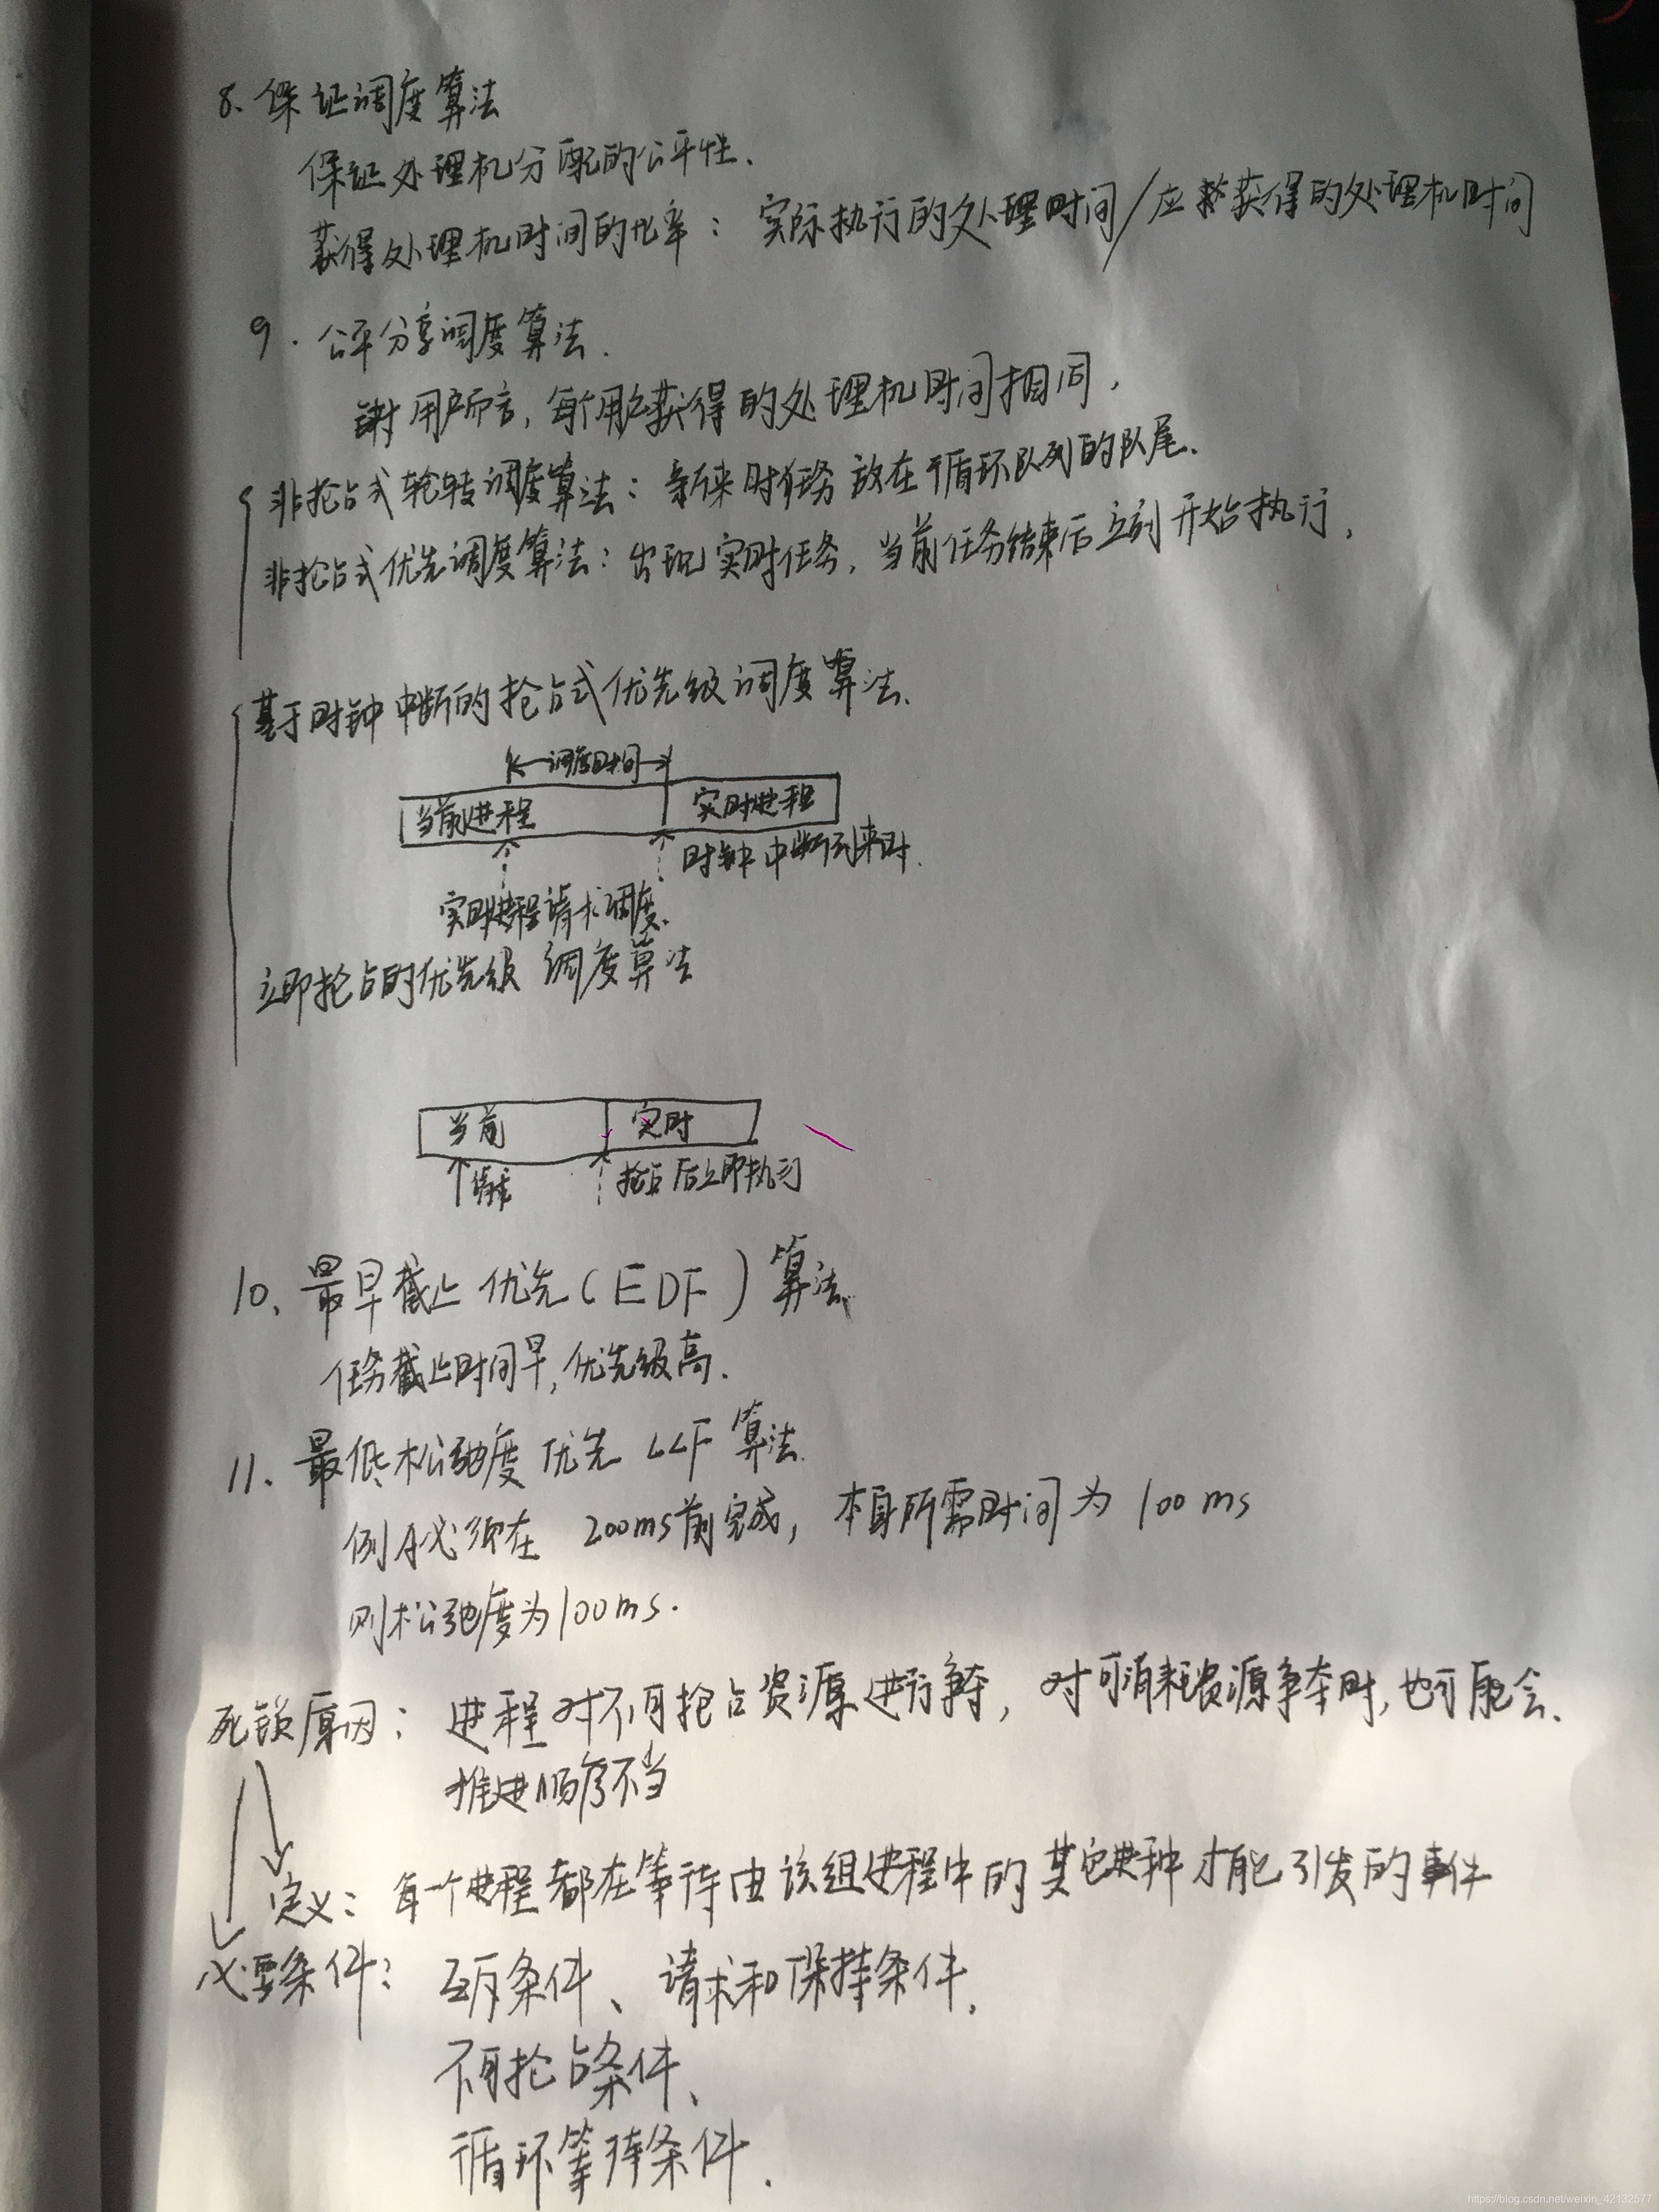 8、保证调度算法
保证处理机分配的公平性、
获得处理机时间的比率：实际执行的处理时间/应获得的处理机时间
9. 公平分享调度算法.
针对用户而言，每个用户获得的处理机时间相同，
非抢占式轮转调度算法：新来时任务放在循环队列的队尾、
非抢占式优先调度算法：出现实时任务，当前任务结束后立刻开始执行，
基于时钟中断的抢占式优先级调度算法、
调度时间
当前进程 实时进程
时钟中断到来时.
实时进程请求调度、
立即抢占的优先级调度算法
当前 实时
请求 抢占后立即执行
10、最早截止优先（EDF）算法、
任务截止时间早，优先级高.
11、最低松弛度优先LLF算法.
例A必须在200ms前完成，本身所需时间为100ms
则松弛度为100ms.
死锁原因：进程对不可抢占资源进行争夺，对可消耗资源争夺时，也可能会.
推进顺序不当
定义：每一个进程都在等待由该组进程中的其它进种才能引发的事件
必要条件：互斥条件、请求和保持条件、
不可抢占条件、
循环等待条件.
https://blog.csdn.net/weixin_42132577